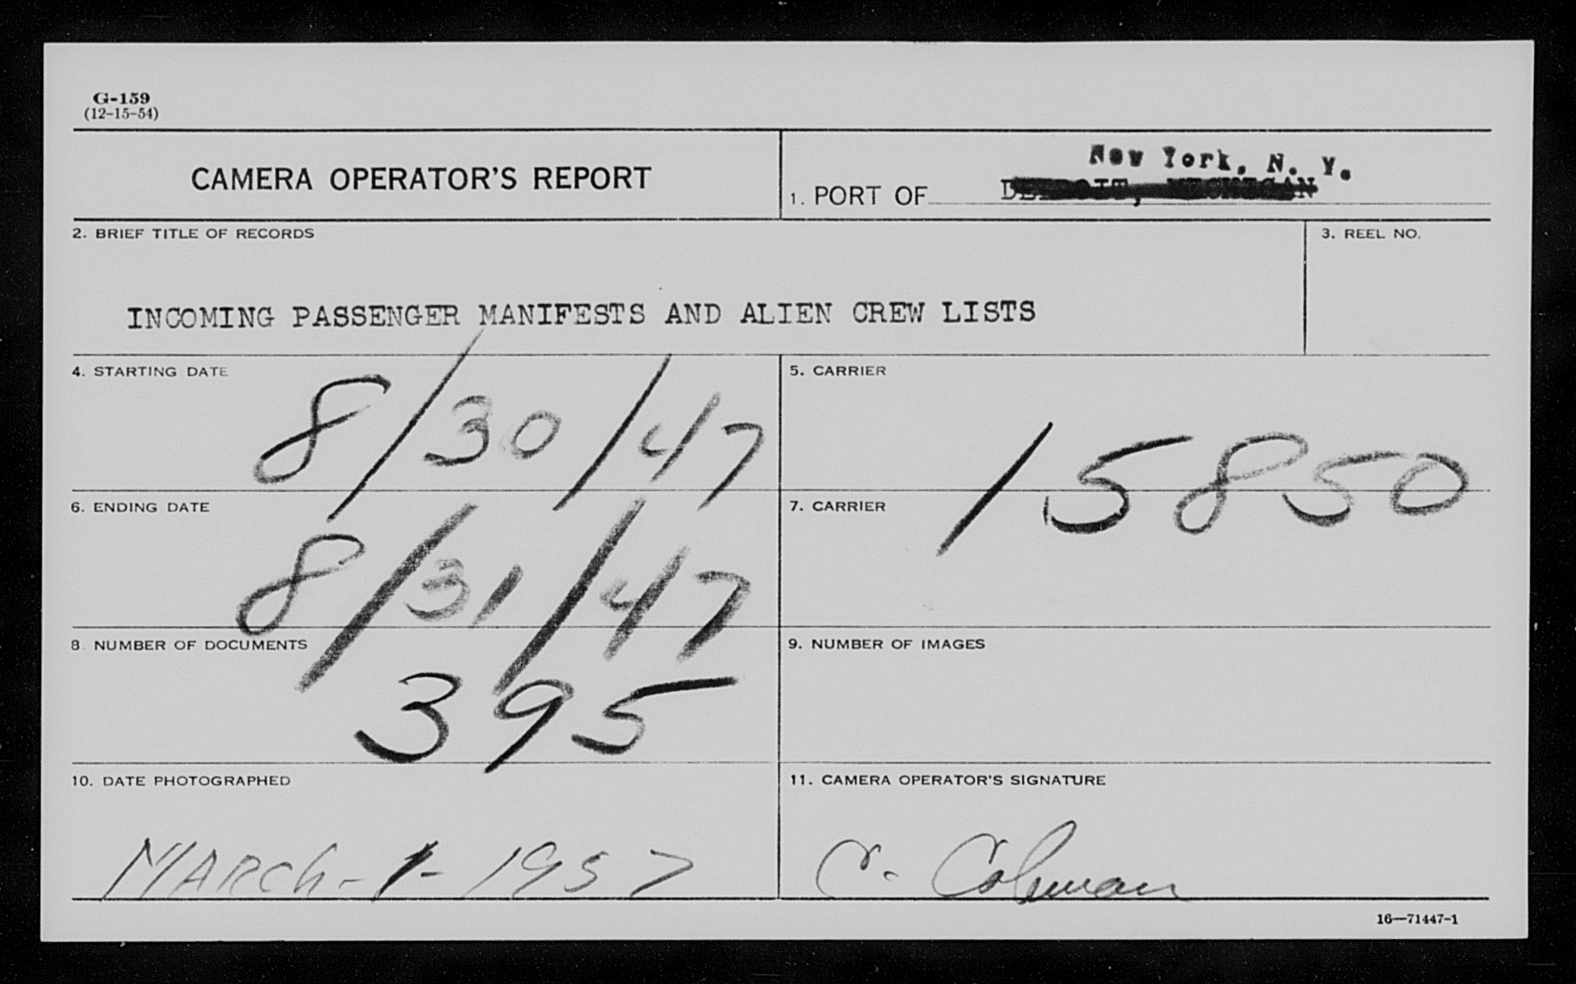 G-159
(12-15-54)
CAMERA OPERATOR'S REPORT
New York, N. Y.
1. PORT OF DETROIT, MICHIGAN
2. BRIEF TITLE OF RECORDS
3. REEL NO.
INCOMING PASSENGER MANIFESTS AND ALIEN CREW LISTS
4. STARTING DATE
8/30/47
5. CARRIER
15850
6. ENDING DATE
8/31/47
7. CARRIER
8. NUMBER OF DOCUMENTS
395
9. NUMBER OF IMAGES
10. DATE PHOTOGRAPHED
MARCH-1-1957
11. CAMERA OPERATOR'S SIGNATURE
C. Coleman
16—71447-1